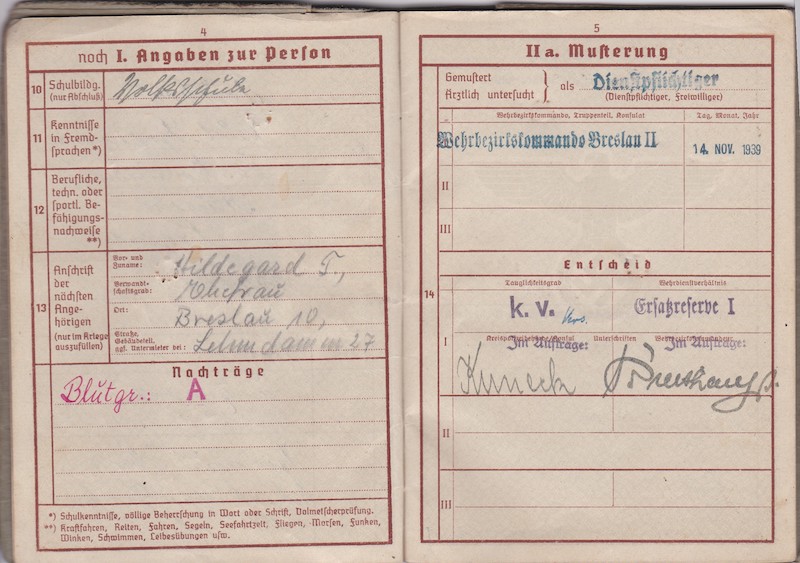 4
noch I. Angaben zur Person
10 Schulbildg. (nur Abschluß) Volksschule
11 Kenntnisse in Fremdsprachen *)
12 Berufliche, techn. oder sportl. Befähigungsnachweise **)
13 Anschrift der nächsten Angehörigen (nur im Kriege auszufüllen)
Vor- und Zuname: Hildegard T.,
Verwandtschaftsgrad: Ehefrau
Ort: Breslau 10,
Straße, Gebäudeteil, ggf. Untermieter bei: Lehmdamm 27
Nachträge
Blutgr.: A
*) Schulkenntnisse, völlige Beherrschung in Wort oder Schrift, Dolmetscherprüfung.
**) Kraftfahren, Reiten, Fahren, Segeln, Seefahrtzeit, Fliegen, Morsen, Funken,
Winken, Schwimmen, Leibesübungen usw.
5
II a. Musterung
Gemustert
Ärztlich untersucht } als Dienstpflichtiger
(Dienstpflichtiger, Freiwilliger)
Wehrbezirkskommando, Truppenteil, Konsulat Tag, Monat, Jahr
Wehrbezirkskommando Breslau II 14. NOV. 1939
II
III
Entscheid
14
Tauglichkeitsgrad Wehrdienstverhältnis
k. v. Ersatzreserve I
I
Unterschriften
Im Auftrage: Im Auftrage:
II
III